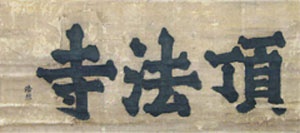 頂法寺